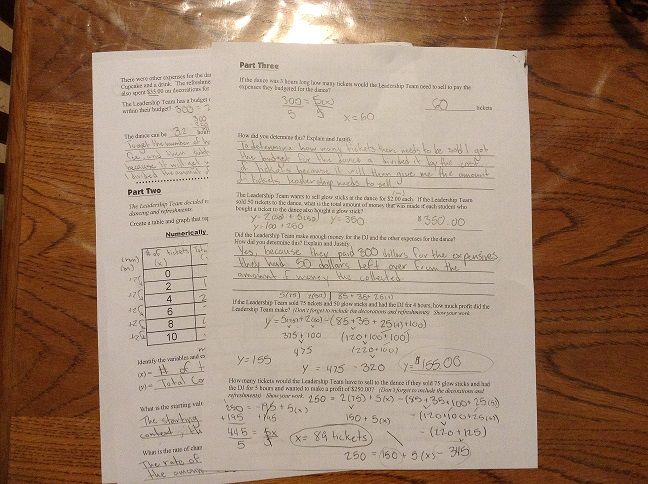 There were other expenses for the da
Cupcake and a drink. The refreshme
also spent $35.00 on decorations for
The Leadership Team has a budget
within their budget? 300 =
The dance can be 32 hour
because it will get
I divided the amount
Part Two
The Leadership Team decided
dancing and refreshments.
Create a table and graph that rep
Numerically
# of tickets
(x)
0
2
4
6
8
10
Identify the variables and ex
(x) = # of t
(y) = Total Co
What is the starting val
The starting
What is the rate of chan
The rate of
the amoun
Part Three
If the dance was 3 hours long how many tickets would the Leadership Team need to sell to pay the
expenses they budgeted for the dance?
300 = 5(x)
5 5 x=60
60 tickets
How did you determine this? Explain and Justify.
To determine how many tickets then needs to be sold I got
the budget for the dance & divided it by the cost
of tickets because it will then give me the amount
of tickets leadership needs to sell.
The Leadership Team wants to sell glow sticks at the dance for $2.00 each. If the Leadership Team
sold 50 tickets to the dance, what is the total amount of money that was made if each student who
bought a ticket to the dance also bought a glow stick?
y= 2(50) + 5(50) y= 350 $350.00
y=100 + 250
Did the Leadership Team make enough money for the DJ and the other expenses for the dance?
How did you determine this? Explain and Justify.
Yes, because they paid 300 dollars for the expensives
they had 50 dollars left over from the
amount of money the collected.
5(75) 2(50) | 85+35+25(4)
If the Leadership Team sold 75 tickets and 50 glow sticks and had the DJ for 4 hours, how much profit did the
Leadership Team make? (Don't forget to include the decorations and refreshments) Show your work.
y = 5(75)+2(50)-(85+35+25(4)+100)
375+100 (120+100+100)
475 (220+100)
y=155 y = 475 - 320 y= $155.00
How many tickets would the Leadership Team have to sell to the dance if they sold 75 glow sticks and had
the DJ for 5 hours and wanted to make a profit of $250.00? (Don't forget to include the decorations and
refreshments) Show your work. 250 = 2(75) + 5(x) - (85+35+100+25(5))
250 = -195 + 5(x) 150 + 5(x) - (120+100+25(5))
+195 +195 - (220+125)
445 = 5x x= 89 tickets
5 5 250 = 150 + 5(x) - 345